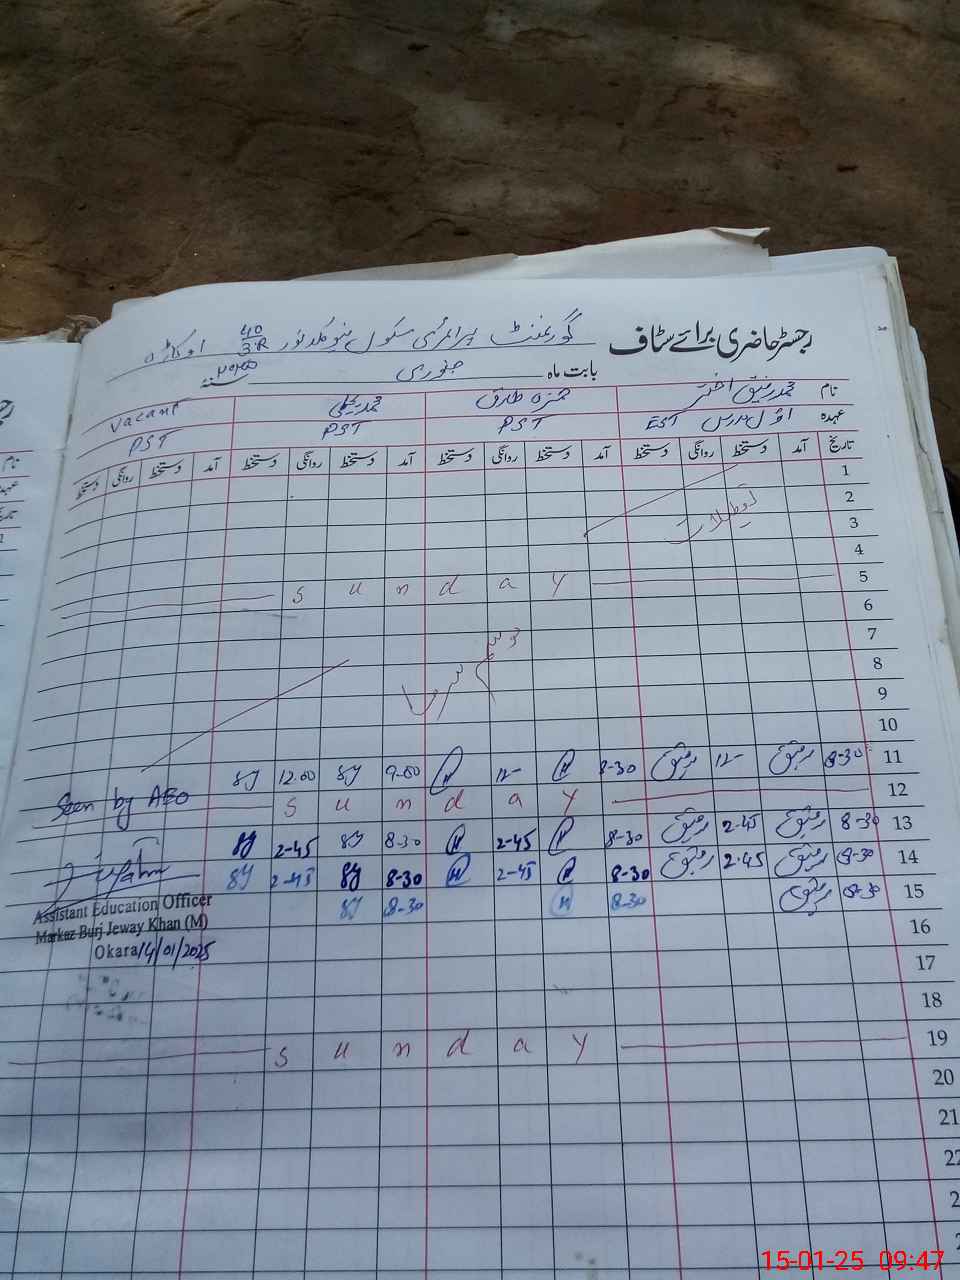 رجسٹر حاضری برائے سٹاف گورنمنٹ پرائمری سکول 40/3.R اوکاڑہ
بابت ماہ جنوری سنہ
نام محمد رفیق اختر حمزہ طارق محمد یحیٰی Vacant
عہدہ اوّل مدرس EST PST PST PST
تاریخ آمد دستخط روانگی دستخط آمد دستخط روانگی دستخط آمد دستخط روانگی دستخط آمد دستخط روانگی دستخط
1
2 تعطیلات
3
4
5 Sunday
6
7 موسم سرما
8
9
10
11 8-30 رفیق 12- رفیق 8-30 H 12- H 9-00 8y 12.00 8y
12 Sunday
Seen by AEO
13 8-30 رفیق 2-45 رفیق 8-30 H 2-45 H 8-30 8y 2-45 8y
14 8-30 رفیق 2-45 رفیق 8-30 H 2-45 H 8-30 8y 2-45 8y
15 8-30 رفیق 8-30 H 8-30 8y
Assistant Education Officer
Markaz Burj Jeway Khan (M)
Okara 14/01/2025
16
17
18
19 Sunday
20
21
22
15-01-25 09:47